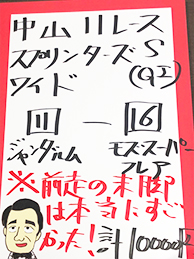 中山11レース
スプリンターズS
ワイド (G1)
11 — 16
ジャンダルム モズスーパー
フレア
※前走の末脚
は本当にすご
かった!
計10000円